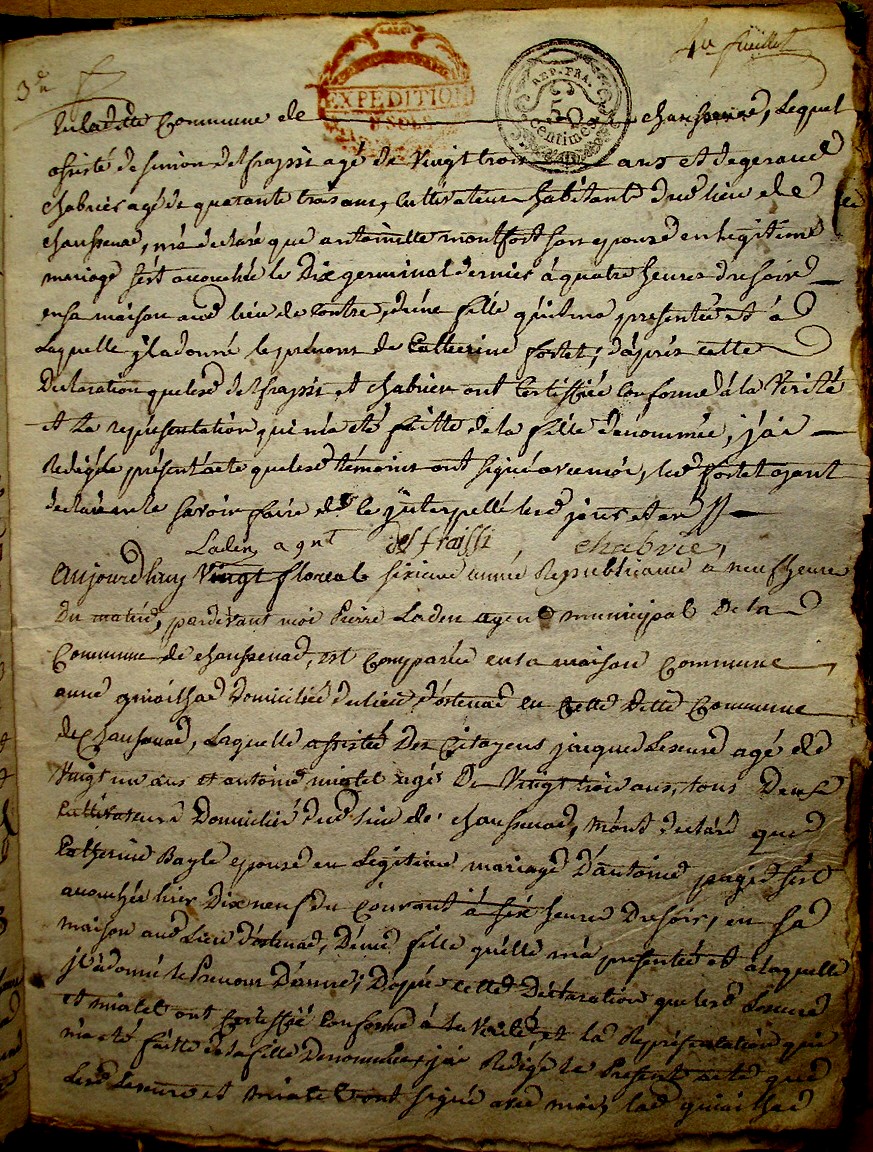 3e
4e feuillet
EXPEDITION
REP. FRA.
50
Centimes
En ladite Commune de chaussenac, Lequel
assisté de simon delfraissi agé de Vingt trois ans et de geraud
chabrier agé de quarante trois ans, cultivateurs habitants dud lieu de
chaussenac, m'a declaré que antoinette montfort son epouse en legitime
mariage s'est acouchée le Dix germinal dernier à quatre heures du soir
en sa maison aud lieu de contre, d'une fille qu'il ma presentée et à
Laquelle il a donné le prénom de Catherine fortet; d'après cette
Declaration que lesd delfraissi et chabrier ont certiffiée conforme à la Verité
et La representation qui m'a eté faitte de la fille denommée, j'ai
Redigé le présent acte que lesd témoins ont signé avec moi, led fortet ayant
declaré ne le savoir faire de ce interpellé lesd jour et an
Laden agnt delfraissi chabrie,
Aujourdhuy Vingt floreal sixieme année Republicaine a neuf heures
Du matin, pardevant moi Pierre Laden agent municipal De la
Commune de chaussenac, est Comparue en la maison Commune
anne Domiciliée du lieu d'ostenac en Cette Ditte Commune
de Chaussenac, Laquelle assistée Des Citoyens jacques Lescure agé de
Vingt un ans et antoine mialet agé De Vingt trois ans, tous Deux
Cultivateurs Domiciliés dud lieu de chaussenac, m'ont declaré que
Catherine Bayle epouse en Legitime mariage D'antoine pages s'est
acouchée hier Dix neuf du Courant à six heures Du soir, en sa
maison aud Lieu d'ostenac, D'une fille qu'elle m'a presentée et à laquelle
il a donné le Prenom D'anne; D'apres cette Declaration que lesd Lescure
et mialet ont certiffié Conforme à La Verité, et la Représentation qui
m'a eté faitte de la fille Denommée, j'ai Redigé le Present acte que
Lesd Lescure et mialet ont signé avec moi, lad